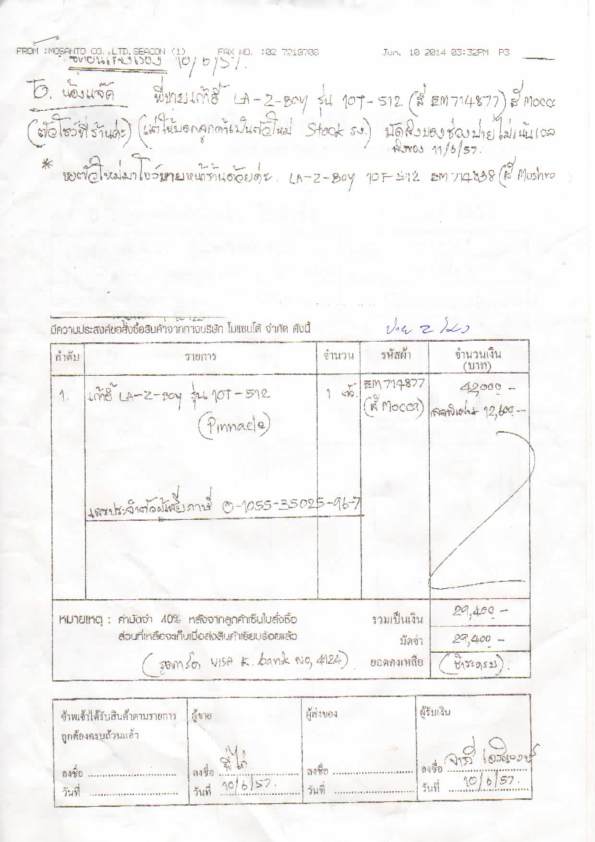 FROM :MOSANTO CO.,LTD.SEACON (1) FAX NO. :02 7218708 Jun. 10 2014 03:32PM P3
10/6/57.
น้องแจ๊ค พี่ขายเก้าอี้ LA-Z-BOY รุ่น 10T-512 (สี EM714877) สี Mocc
(ตัวโชว์ที่ร้านค่ะ) (แต่ให้บอกลูกค้าเป็นตัวใหม่ Stock รง.) นัดส่งของช่วงบ่ายไม่เน้นเวล
ส่งของ 11/6/57.
* ขอตัวใหม่มาโชว์ขายหน้าร้านด้วยค่ะ. LA-Z-BOY 10T-512 EM714838 (สี Mushro
มีความประสงค์ขอสั่งซื้อสินค้าจากทางบริษัท โมแซนโต้ จำกัด ดังนี้
บ่าย 2 โมง
ลำดับ รายการ จำนวน รหัสผ้า จำนวนเงิน
(บาท)
1. เก้าอี้ LA-Z-BOY รุ่น 10T-512 1 ตัว EM714877 42,000 -
(Pinnacle) (สี Mocca) ลดพิเศษ 12,600 -
เลขประจำตัวผู้เสียภาษี 0-1055-35025-96-7
หมายเหตุ : ค่ามัดจำ 40% หลังจากลูกค้าเซ็นใบสั่งซื้อ รวมเป็นเงิน 29,400 -
ส่วนที่เหลือจะเก็บเมื่อส่งสินค้าเรียบร้อยแล้ว มัดจำ 29,400 -
(รูดการ์ด VISA K. bank No, 4124) ยอดคงเหลือ (ชำระครบ)
ข้าพเจ้าได้รับสินค้าตามรายการ ผู้ขาย ผู้ส่งของ ผู้รับเงิน
ถูกต้องครบถ้วนแล้ว
ลงชื่อ ลงชื่อ พี่ไก่ ลงชื่อ ลงชื่อ
วันที่ วันที่ 10/6/57. วันที่ วันที่ 10/6/57.